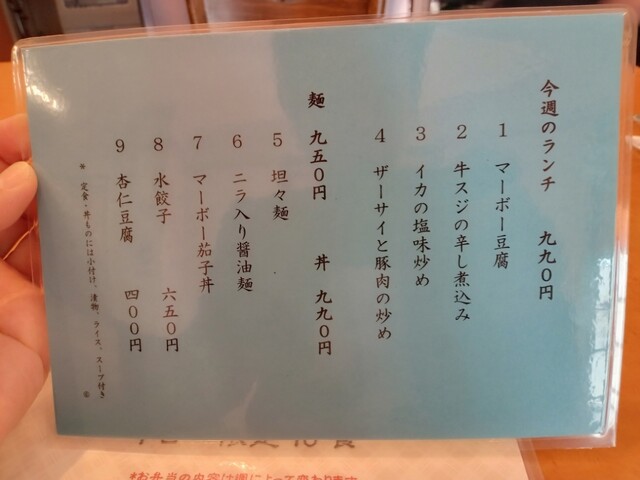 今週のランチ　九九０円
1 マーボー豆腐
2 牛スジの辛し煮込み
3 イカの塩味炒め
4 ザーサイと豚肉の炒め
麺 九五０円　丼 九九０円
5 坦々麺
6 ニラ入り醤油麺
7 マーボー茄子丼
8 水餃子　六五０円
9 杏仁豆腐　四００円
* 定食・丼ものには小付け、漬物、ライス、スープ付き
*お弁当の内容は週によって変わります